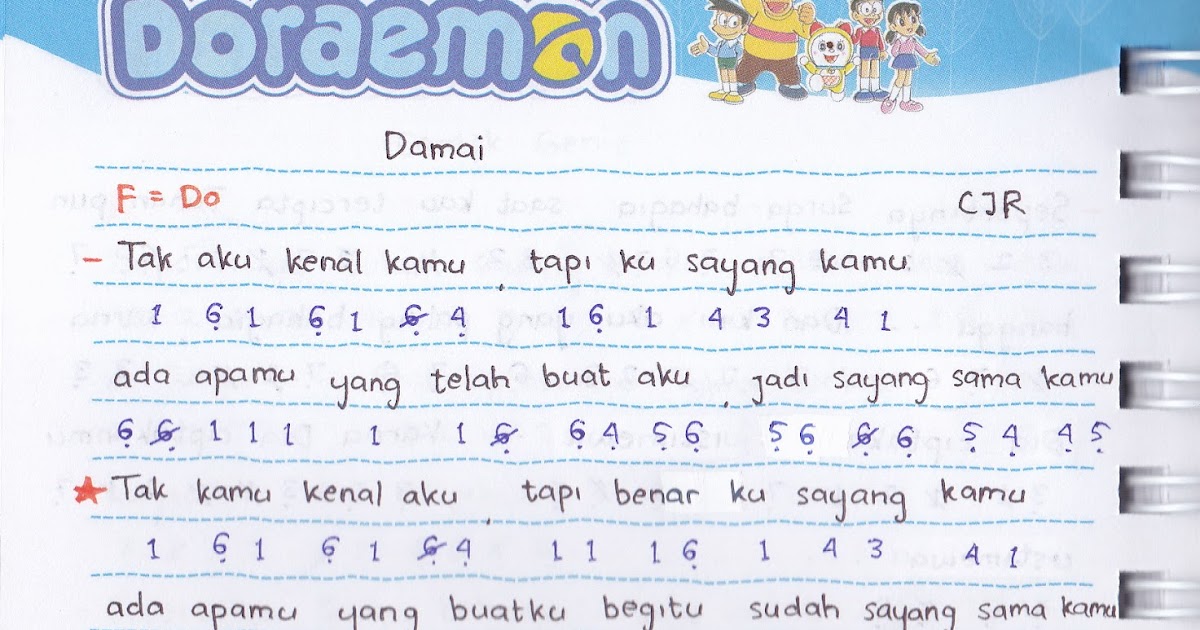 Doraemon
Damai
F = Do CJR
- Tak aku kenal kamu, tapi ku sayang kamu
1 6̣ 1 6̣ 1 6̸̣ 4̣ 1 6̣ 1 4 3 4 1
ada apamu yang telah buat aku, jadi sayang sama kamu
6̣ 6̸̣ 1 1 1 1 1 6̸̣ 6̣ 4̣ 5̣ 6̣ 5̣ 6̣ 6̸̣ 6̣ 5̣ 4̣ 4̣ 5̣
★ Tak kamu kenal aku, tapi benar ku sayang kamu
1 6̣ 1 6̣ 1 6̸̣ 4̣ 1 1 1 6̣ 1 4 3 4 1
ada apamu yang buatku begitu sudah sayang sama kamu